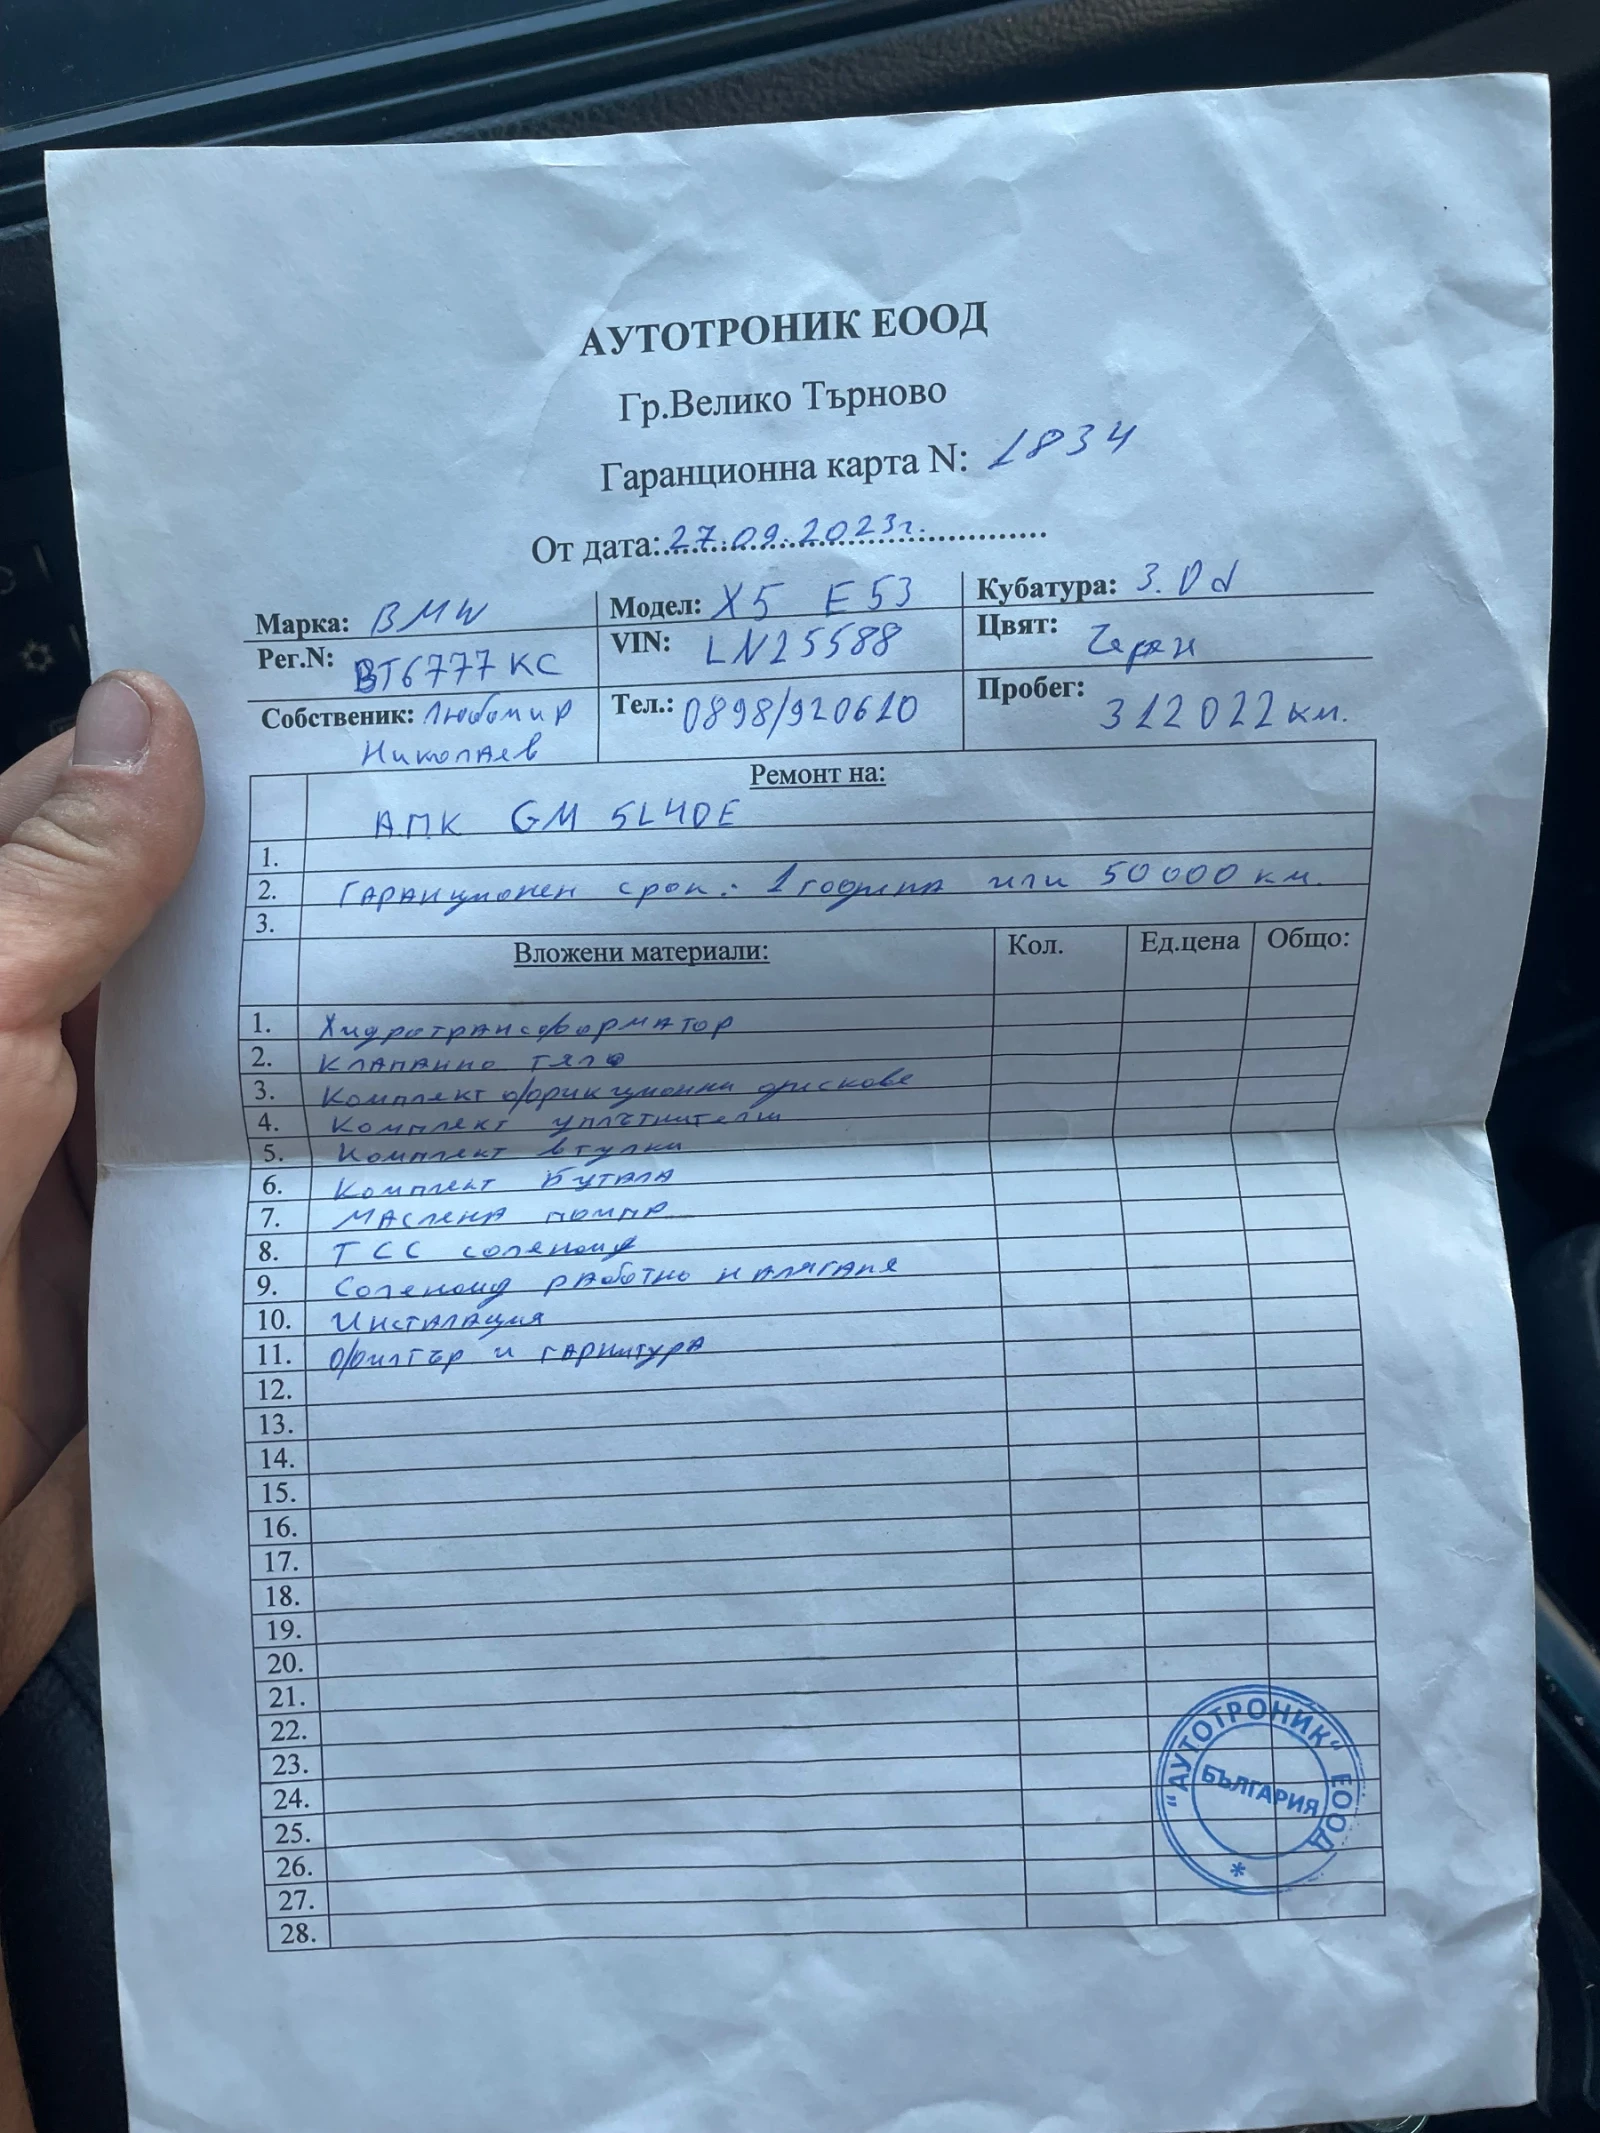 АУТОТРОНИК ЕООД
Гр.Велико Търново
Гаранционна карта N: 1834
От дата: 27.09.2023г.
Марка: BMW Модел: X5 E53 Кубатура: 3.0d
Рег.N: ВТ6777КС VIN: LN25588 Цвят: Черен
Собственик: Любомир Николаев Тел.: 0898/920610 Пробег: 312022 км.
Ремонт на:
АПК GM 5L40E
1.
2. Гаранционен срок: 1 година или 50000 км.
3.
Вложени материали: Кол. Ед.цена Общо:
1. Хидротрансформатор
2. Клапанно тяло
3. Комплект фрикционни дискове
4. Комплект уплътнители
5. Комплект втулки
6. Комплект бутала
7. Маслена помпа
8. ТСС соленоид
9. Соленоид работно налягане
10. Инсталация
11. Филтър и гарнитура
12.
13.
14.
15.
16.
17.
18.
19.
20.
21.
22.
23.
24.
25.
26.
27.
28.
"АУТОТРОНИК" ЕООД
БЪЛГАРИЯ
*